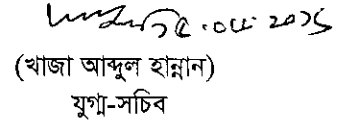 (খাজা আব্দুল হান্নান)
যুগ্ম-সচিব